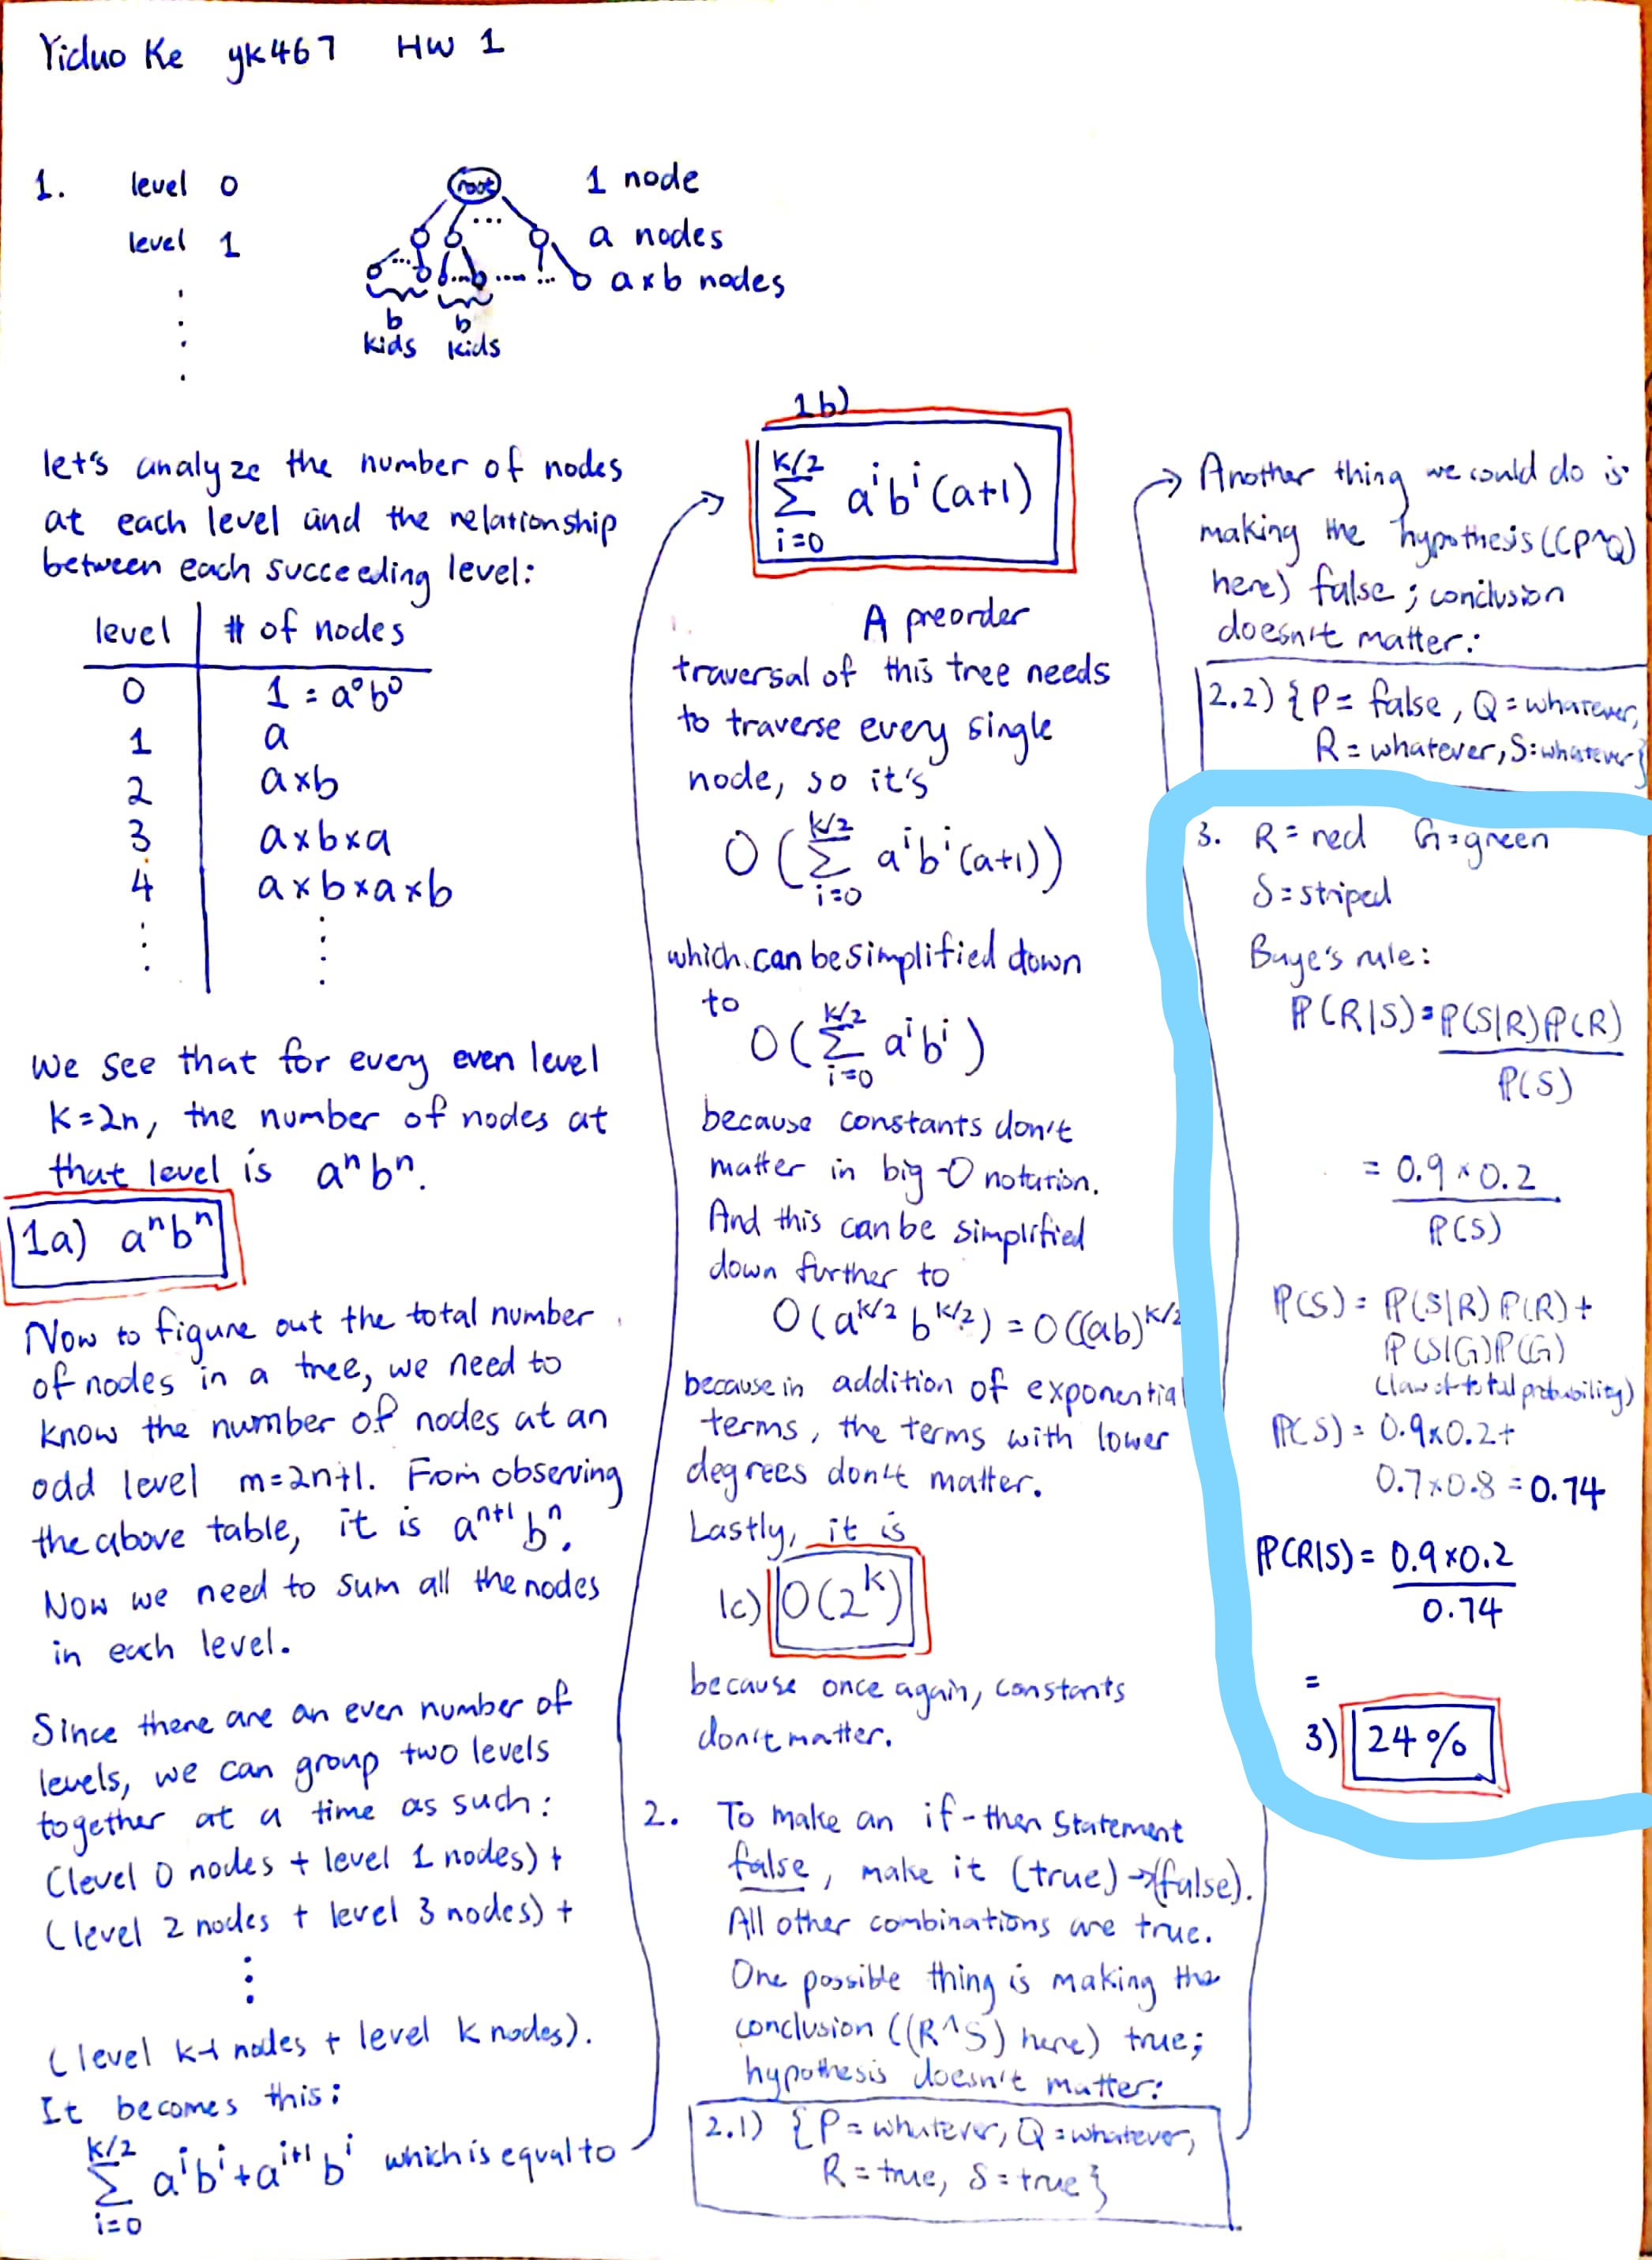 Yiduo Ke yk467 HW 1
1. level 0
root
1 node
level 1
...
a nodes
... ... .... ... a×b nodes
b
kids
b
kids
let's analyze the number of nodes
at each level and the relationship
between each succeeding level:
level # of nodes
0 1 = a⁰b⁰
1 a
2 a×b
3 a×b×a
4 a×b×a×b
we see that for every even level
k=2n, the number of nodes at
that level is aⁿbⁿ.
1a) aⁿbⁿ
Now to figure out the total number
of nodes in a tree, we need to
know the number of nodes at an
odd level m=2n+1. From observing
the above table, it is aⁿ⁺¹bⁿ.
Now we need to sum all the nodes
in each level.
Since there are an even number of
levels, we can group two levels
together at a time as such:
(level 0 nodes + level 1 nodes) +
(level 2 nodes + level 3 nodes) +
⋮
(level k-1 nodes + level k nodes).
It becomes this:
k/2
Σ aⁱbⁱ+aⁱ⁺¹bⁱ which is equal to
i=0
1b)
k/2
Σ aⁱbⁱ(a+1)
i=0
A preorder
traversal of this tree needs
to traverse every single
node, so it's
k/2
O(Σ aⁱbⁱ(a+1))
i=0
which can be simplified down
to
k/2
O(Σ aⁱbⁱ)
i=0
because constants don't
matter in big-O notation.
And this can be simplified
down further to
O(a^(k/2) b^(k/2)) = O((ab)^(k/2)
because in addition of exponential
terms, the terms with lower
degrees don't matter.
Lastly, it is
1c) O(2ᵏ)
because once again, constants
don't matter.
2. To make an if-then statement
false, make it (true)→(false).
All other combinations are true.
One possible thing is making the
conclusion ((R^S) here) true;
hypothesis doesn't matter:
2.1) {P = whatever, Q = whatever,
R = true, S = true}
Another thing we could do is
making the hypothesis ((P^Q)
here) false; conclusion
doesn't matter:
2.2) {P = false, Q = whatever,
R = whatever, S = whatever}
3. R = red G = green
S = striped
Baye's rule:
ℙ(R|S) = ℙ(S|R)ℙ(R)
ℙ(S)
= 0.9 × 0.2
ℙ(S)
ℙ(S) = ℙ(S|R)ℙ(R) +
ℙ(S|G)ℙ(G)
(law of total probability)
ℙ(S) = 0.9×0.2+
0.7×0.8 = 0.74
ℙ(R|S) = 0.9×0.2
0.74
=
3) 24%